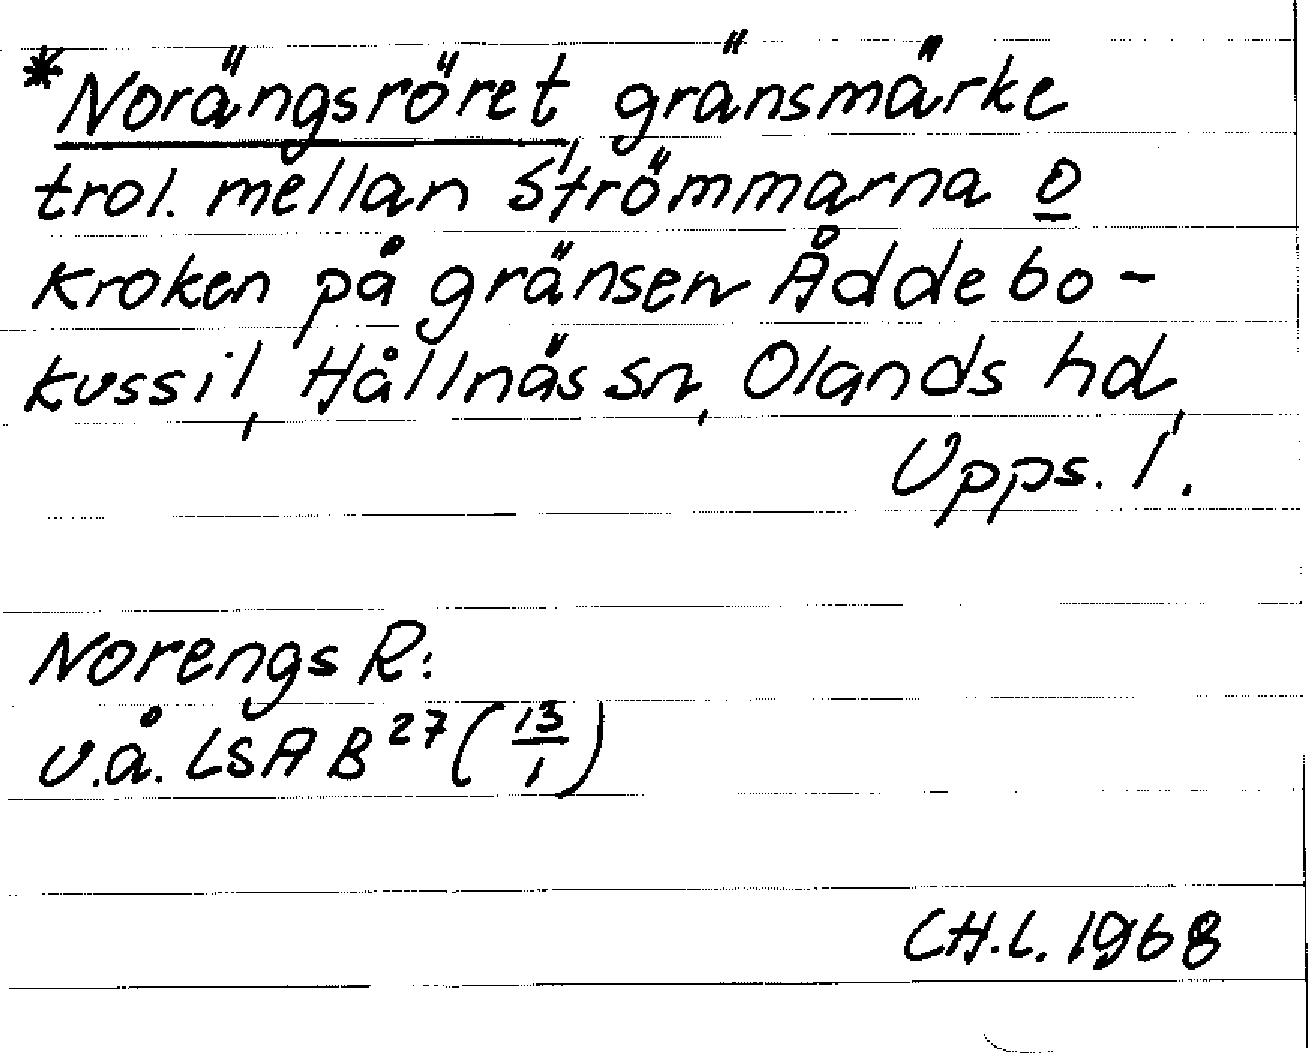 *Norängsröret, gränsmärke
trol. mellan Strömmarna o
Kroken på gränsen Åddebo-
kussil, Hållnäs sn, Olands hd,
Upps. l.
Norengs R:
u.å. LSA B27 (13/1)
CH.L. 1968